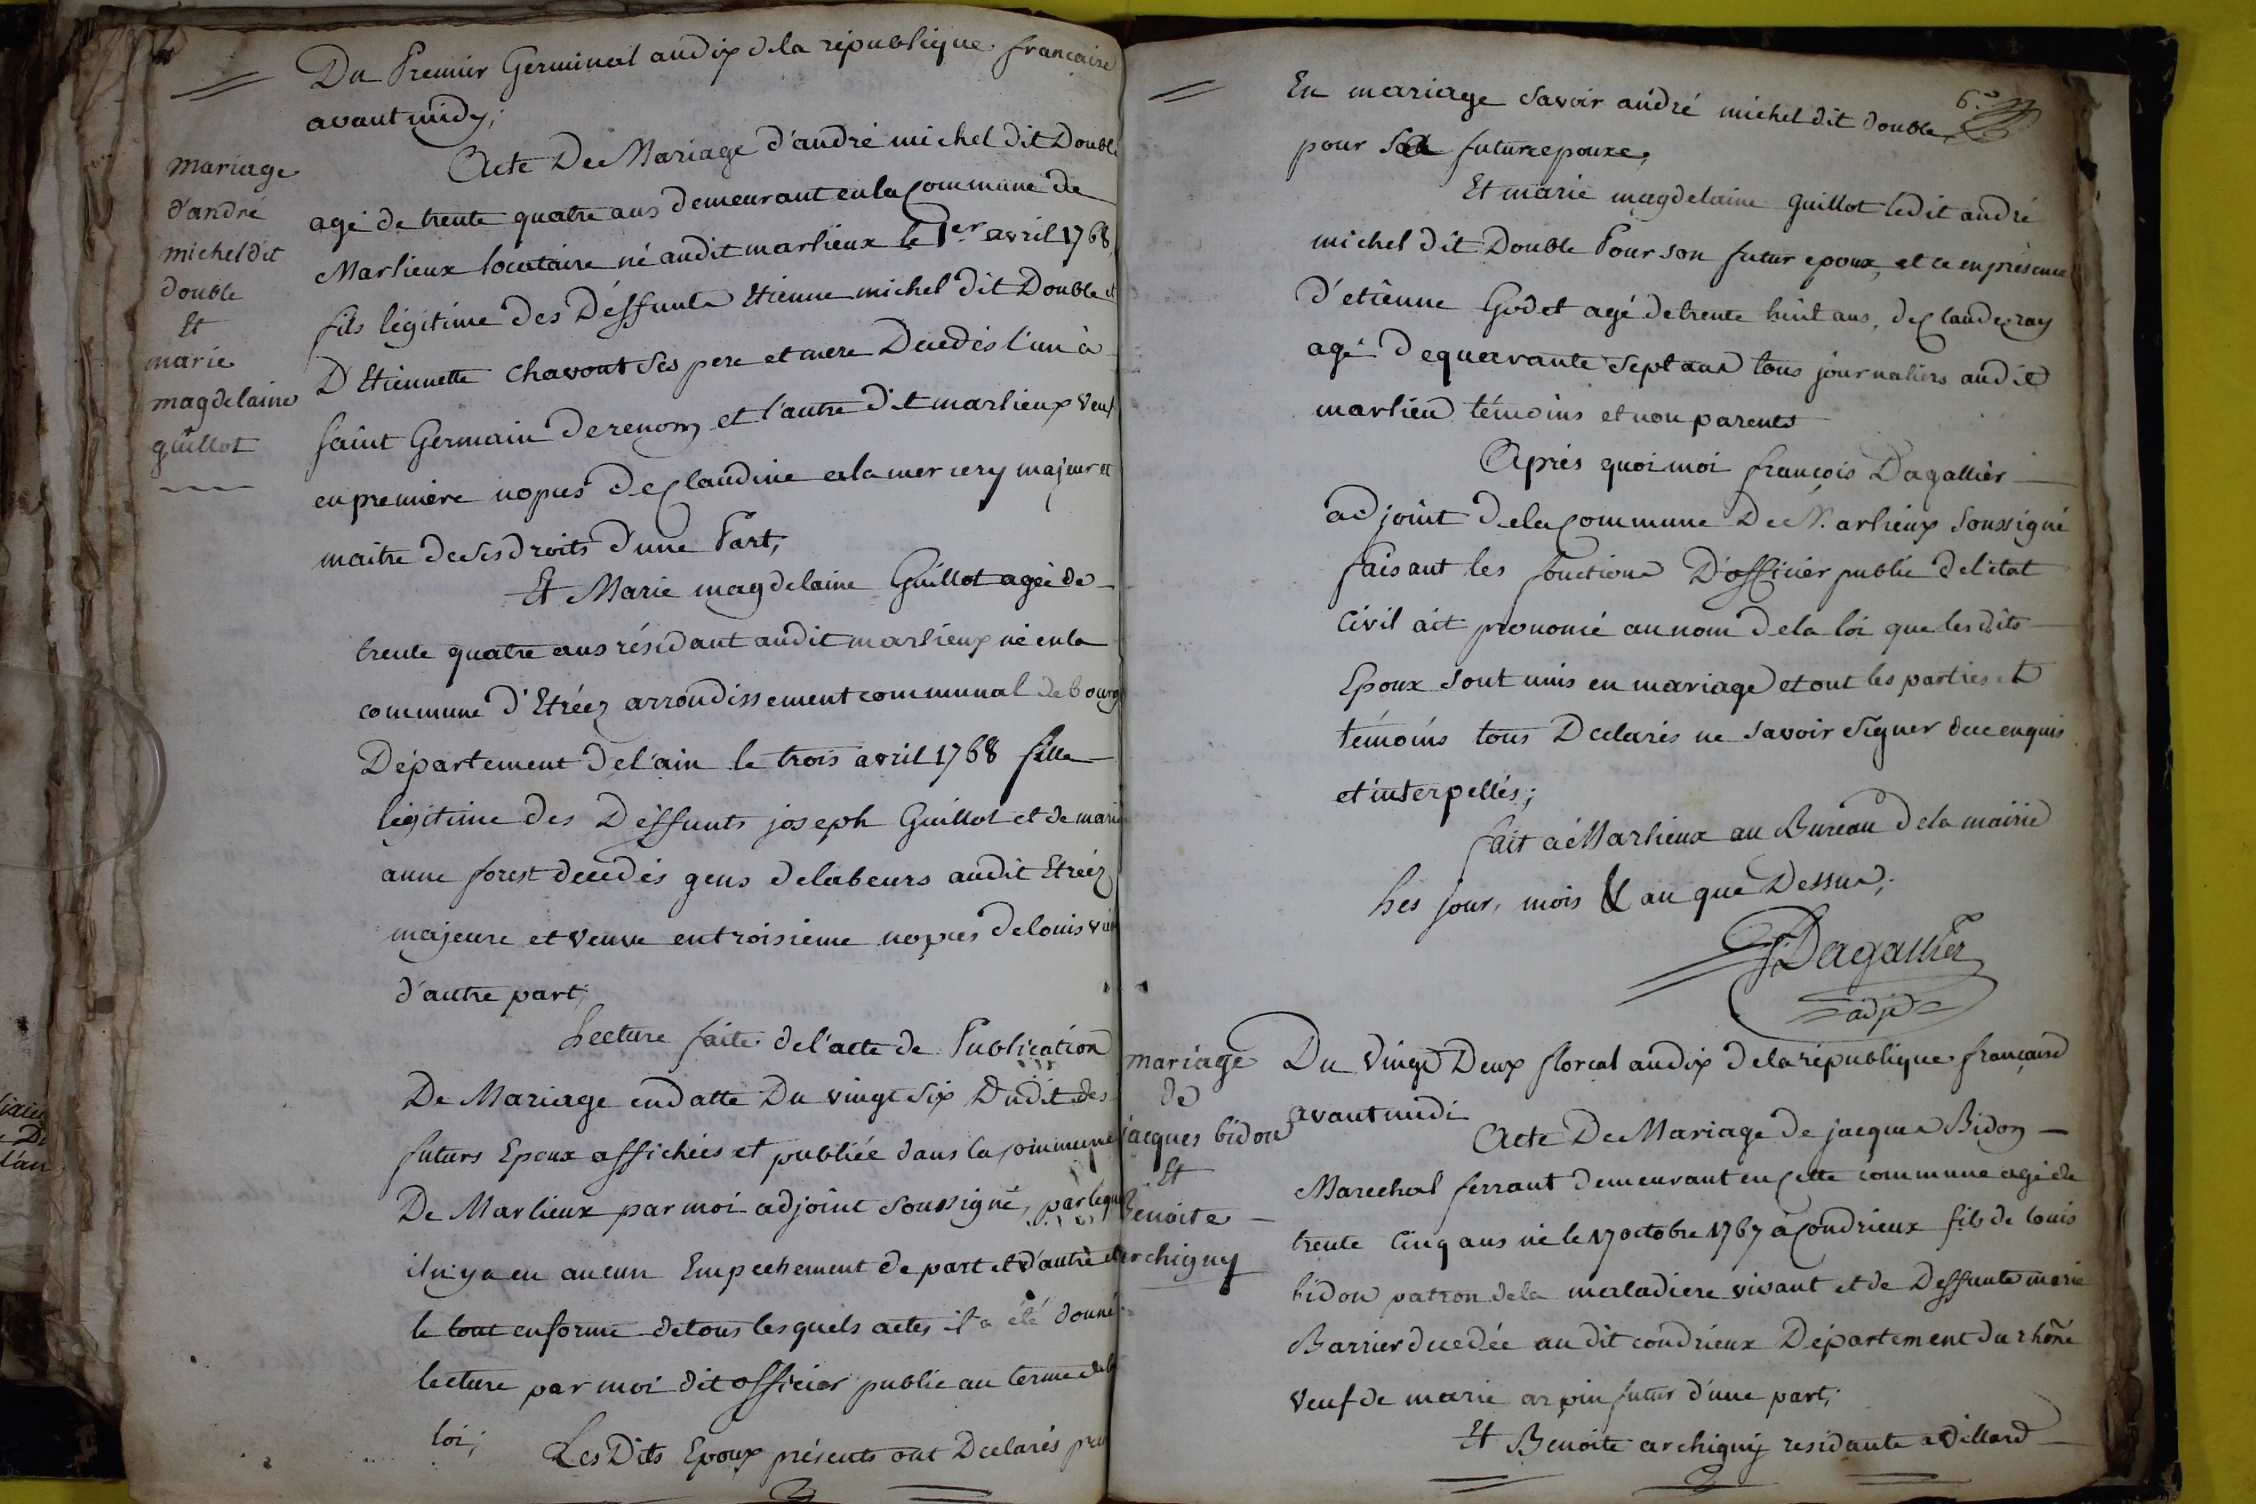 Du Premier Germinal an dix de la république française
avant midy;
Acte De Mariage d'andré michel dit Double
agé de trente quatre ans demeurant en la Commune de
Marlieux locataire né audit marlieux le 1er avril 1768,
fils légitime des Déffunts Etienne michel dit Double et
D'Etiennette Chavont ses pere et mere Decedés l'un à
saint Germain de renom et l'autre dit marlieux veuf
en premiere nopces de Claudine mercery majeur et
maitre de ses droits d'une Part;
Et Marie magdelaine Guillot agée de
trente quatre ans résidant audit marlieux né en la
commune d'Etréez arrondissement communal de bourg
Département de l'ain le trois avril 1768 fille
légitime des Déffunts joseph Guillot et de marie
anne forest decedés gens de labeurs audit Etréez
majeure et veuve en troisieme nopces de louis
d'autre part;
Lecture faite de l'acte de Publication
De Mariage en datte Du vingt six Dudit des
futurs Epoux affichées et publiée dans la commune
De Marlieux par moi adjoint soussigné, par lequel
il n'y a eu aucun Empechement de part et d'autre et
le tout en forme de tous lesquels actes il a été donné
lecture par moi dit officier public au terme de la
loi;
Les Dits Epoux présents ont Declarés
mariage
d'andré
michel dit
double
Et
marie
magdelaine
guillot
6.e
En mariage savoir andré michel dit double
pour sa future epouxe,
Et marie magdelaine guillot ledit andré
michel dit Double Pour son futur epoux, et ce en présence
d'etienne Godet agé de trente huit ans, de Claude ray
agé de quarante sept ans tous journaliers audit
marlieu témoins et non parents
Après quoi moi françois Dagallier
adjoint de la Commune De Marlieux soussigné
faisant les fonctions D'officier public de l'état
civil ait prononcé au nom de la loi que lesdits
Epoux sont unis en mariage et ont les parties et
témoins tous Declarés ne savoir signer de ce enquis
et interpellés;
fait à Marlieux au Bureau de la mairie
Les jour, mois & an que Dessus;
Dagallier
adjt
mariage
de
jacques bidon
Et
Benoite
archigny
Du vingt Deux floreal an dix de la république française
avant midi
Acte De Mariage de jacques Bidon
Marechal ferrant demeurant en cette commune agé de
trente cinq ans né le 17 octobre 1767 à Condrieux fils de louis
bidon patron de la maladiere vivant et de Deffunte marie
Barrier decedée au dit condrieux Département du rhône
veuf de marie arpin futur d'une part;
Et Benoite archigny residante a Villard